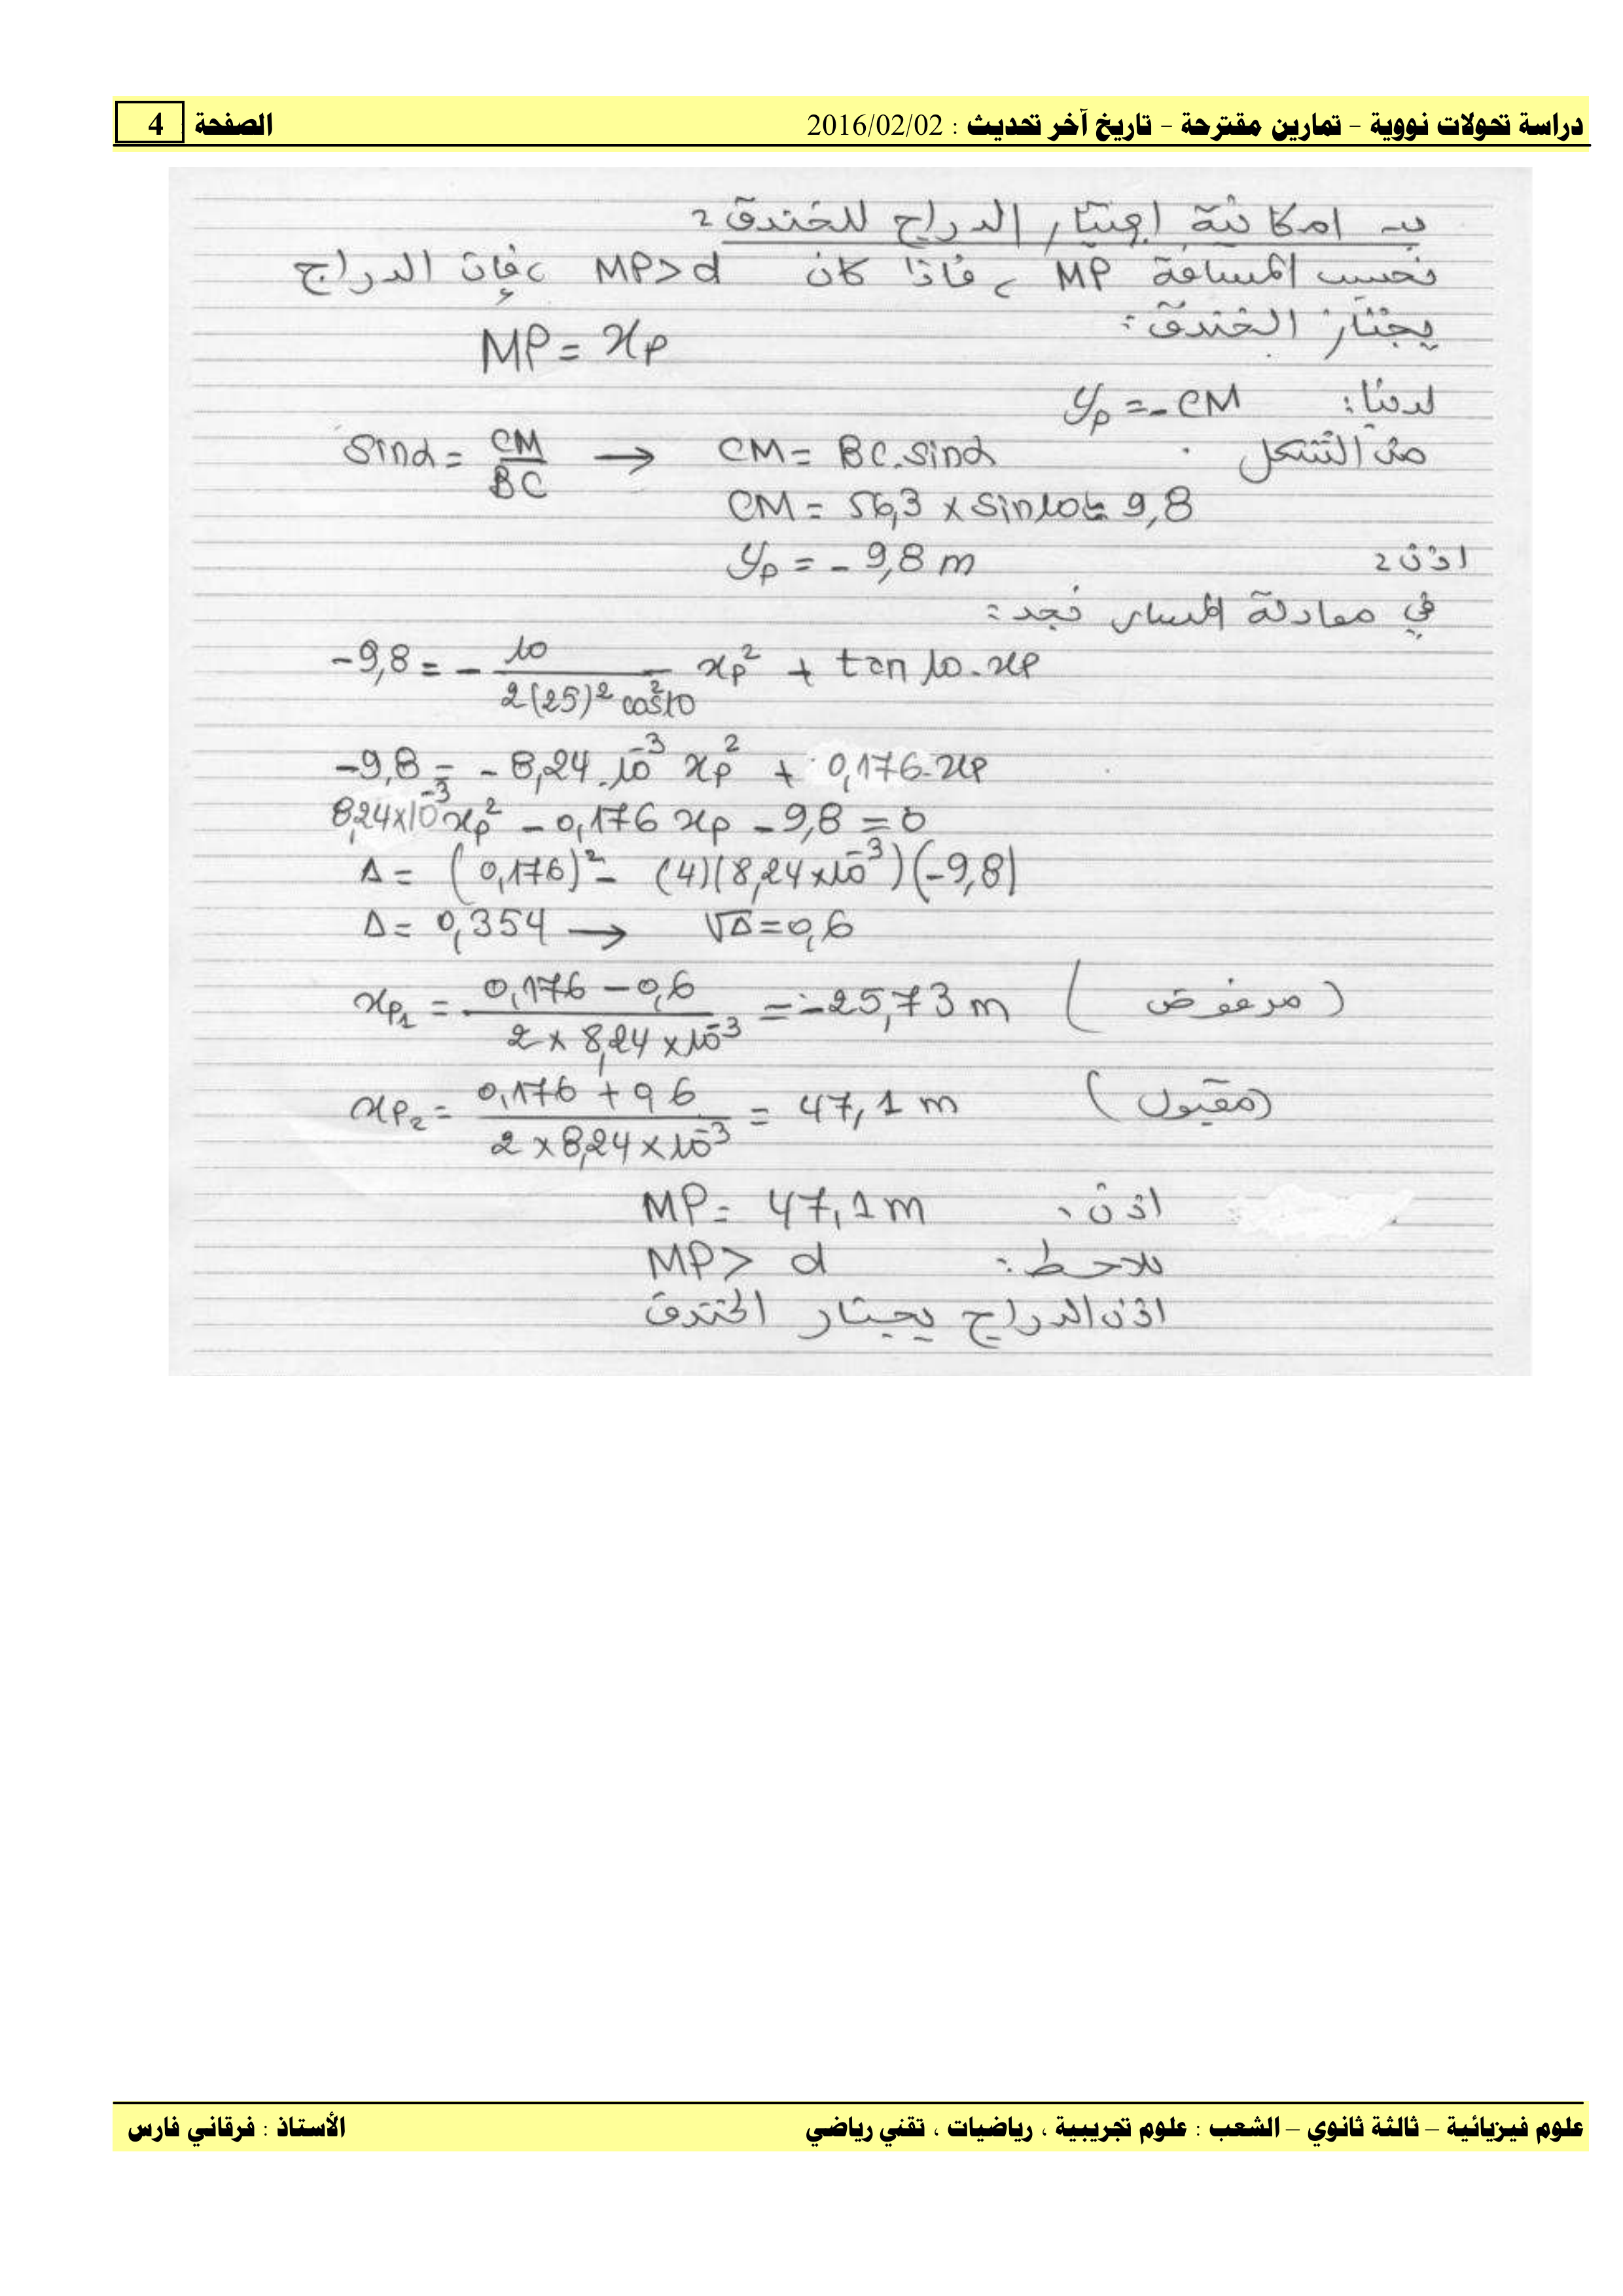 دراسة تحولات نووية - تمارين مقترحة - تاريخ آخر تحديث : 2016/02/02 الصفحة 4
بـ امكانية اجتياز الدراج للخندق :
نحسب المسافة MP ، فاذا كان MP>d ، فإن الدراج
يجتاز الخندق :
MP = xp
لدينا : yp = - CM
من الشكل sinα = CM/BC → CM = BC.sinα
CM = 56,3 x sin10 = 9,8
اذن : yp = - 9,8 m
في معادلة المسار نجد :
-9,8 = - 10/(2(25)² cos²10) xp² + tan 10. xp
-9,8 = - 8,24.10⁻³ xp² + 0,176.xp
8,24x10⁻³ xp² - 0,176 xp - 9,8 = 0
Δ = (0,176)² - (4)(8,24x10⁻³)(-9,8)
Δ = 0,354 → √Δ = 0,6
xp₁ = (0,176 - 0,6)/(2 x 8,24 x10⁻³) = -25,73 m (مرفوض)
xp₂ = (0,176 + 0,6)/(2 x 8,24 x 10⁻³) = 47,1 m (مقبول)
اذن : MP = 47,1 m
نلاحظ : MP > d
اذن الدراج يجتاز الخندق
علوم فيزيائية – ثالثة ثانوي – الشعب : علوم تجريبية ، رياضيات ، تقني رياضي الأستاذ : فرقاني فارس